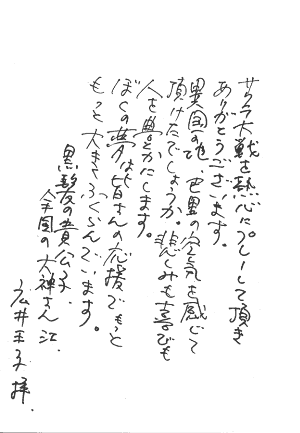 サクラ大戦を熱心にプレーして頂き
ありがとうございます。
異国の地、巴里の空気を感じて
頂けたでしょうか。悲しみも喜びも
人を豊かにします。
ぼくの夢は皆さんの応援でもっと
もっと大きくふくらんでいます。
黒髪の貴公子、
全国の大神さん江、
広井王子 拝.